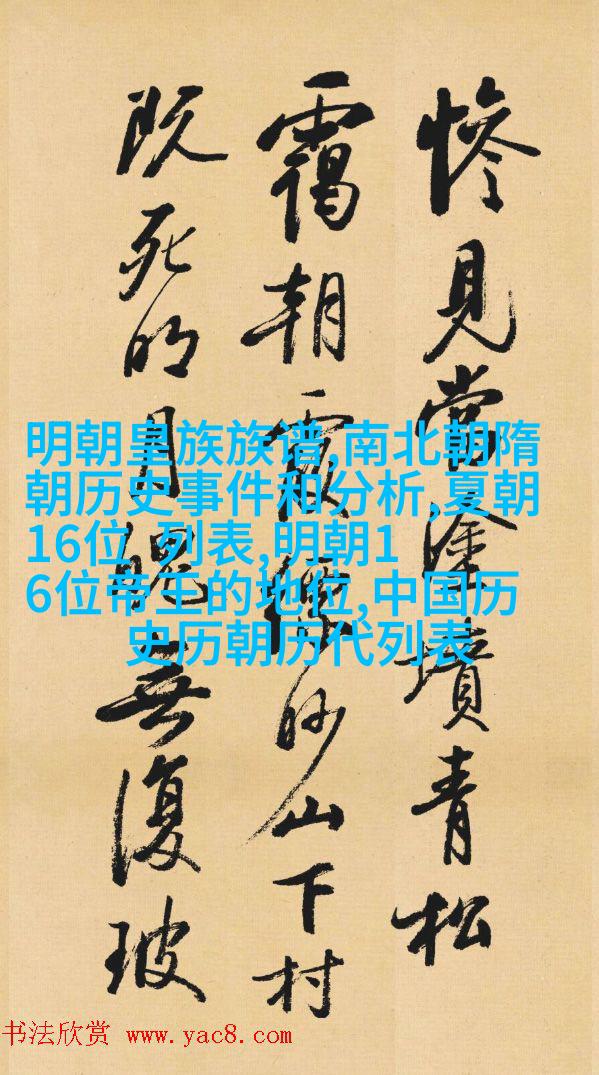 慘見當塗墳青松
靄朝霞縹眇山下村
既死明月魄無復玻
明朝皇族族谱,南北朝隋
朝历史事件和分析,夏朝
16位 列表,明朝1
6位帝王的地位,中国历
史历朝历代列表
书法欣赏 www.yac8.com